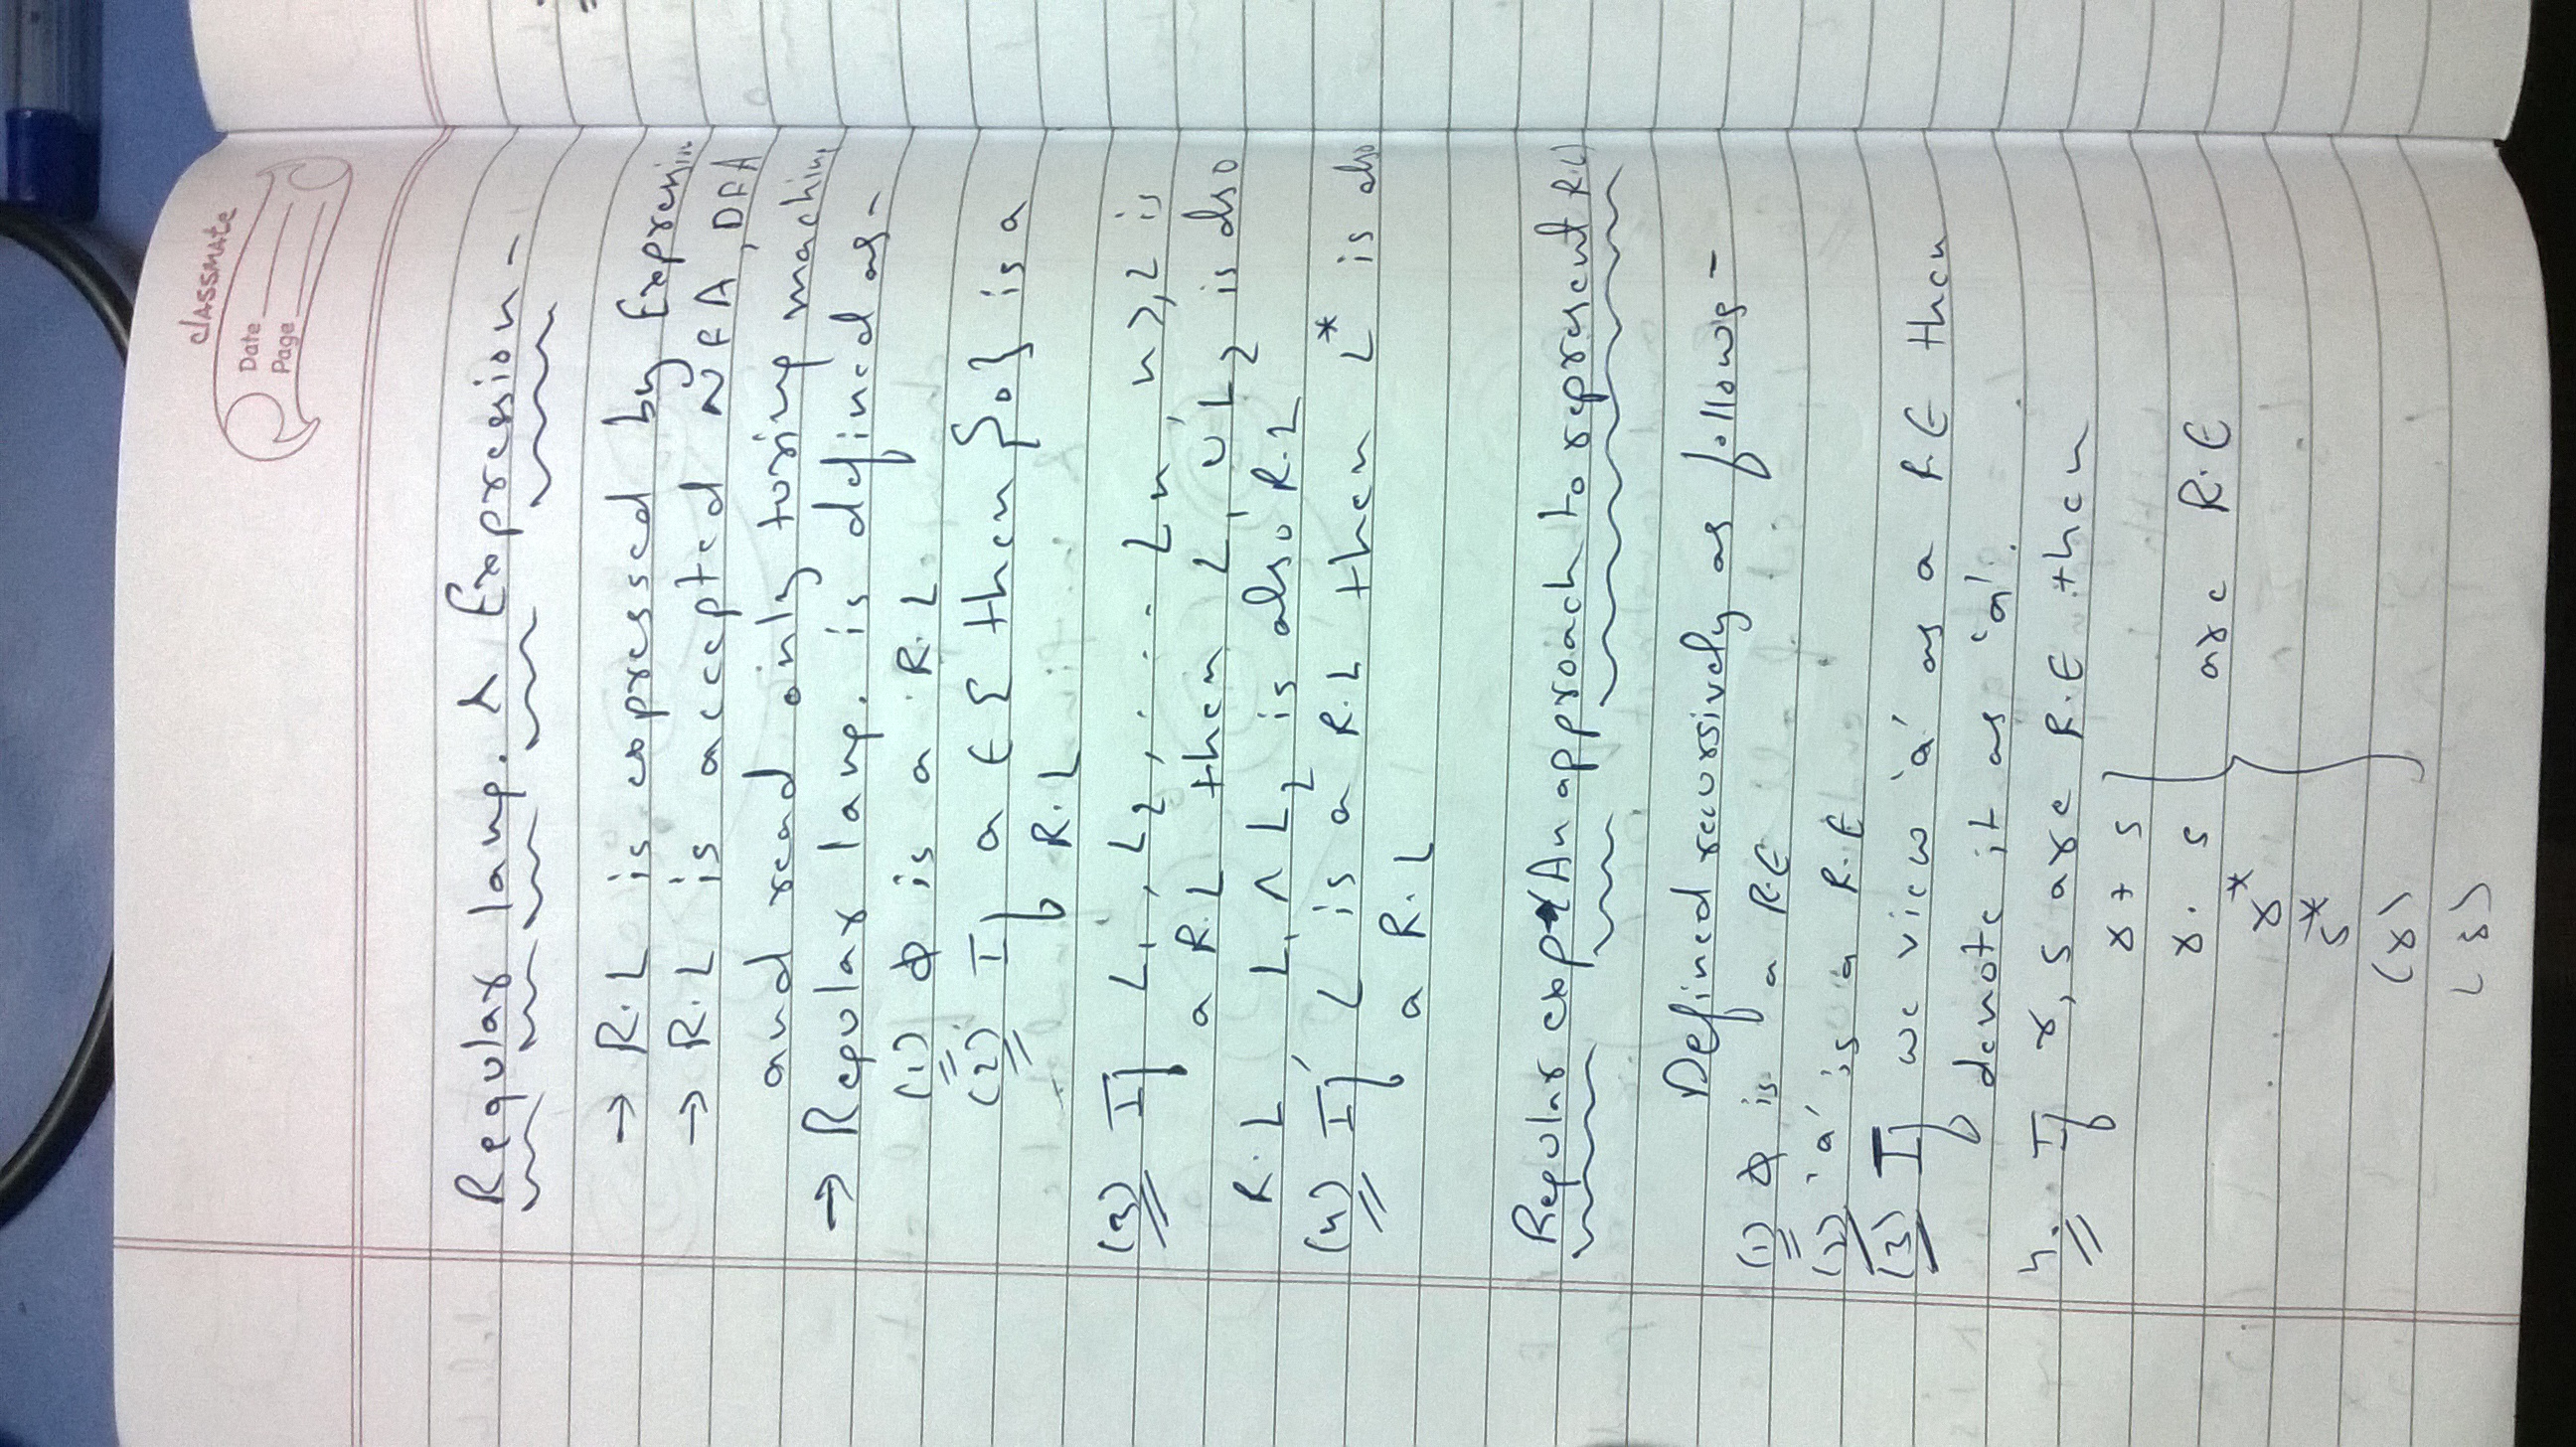 classmate
Date
Page
Regular lang. & Expression -
→ R.L is expressed by Expression
→ R.L is accepted NFA, DFA
and read only turing machine
→ Regular lang. is defined as -
(1) Φ is a R.L
(2) If a ∈ Σ then {a} is a
R.L
(3) If L1, L2, .... Ln, n ≥ 2 is
a R.L then L1 ∪ L2 is also
R.L, L1 ∩ L2 is also R.L
(4) If L is a R.L then L* is also
a R.L
Regular exp (An approach to represent R.L)
Defined recursively as follows -
(1) Φ is a R.E
(2) 'a' is a R.E
(3) If we view 'a' as a R.E then
denote it as 'a'.
4. If r, s are R.E then
r + s
r . s
are R.E
r*
s*
(r)
(s)